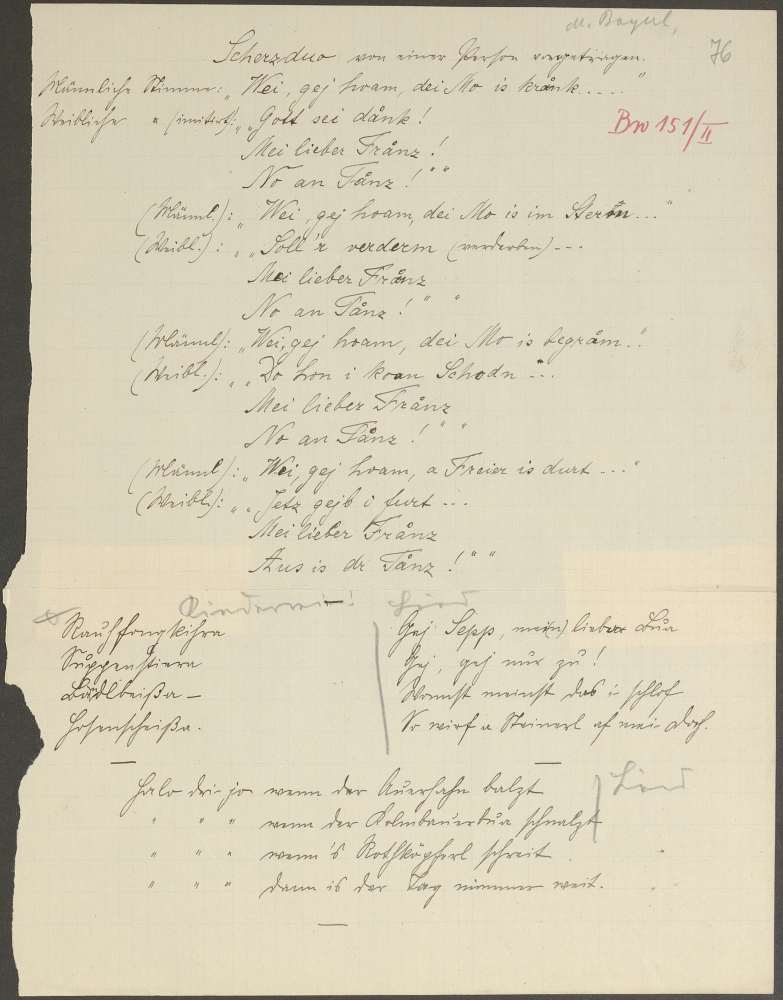 M. Bayerl,
76
Scherzduo von einer Person vorgetragen.
Männliche Stimme: „Wei, gej hoam, dei Mo is krånk....."
Weibliche " (imitiert): „„Gott sei dånk!
Mei lieber Frånz!
No an Tånz!""
Bw 151/II
(Männl.): „Wei, gej hoam, dei Mo is im Sterm..."
(Weibl.): „„Soll'r verderm (verderben)---
Mei lieber Frånz
No an Tånz!""
(Männl): „Wei, gej hoam, dei Mo is begråm.."
(Weibl.): „„Do hon i koan Schodn...
Mei lieber Frånz
No an Tånz!""
(Männl): „Wei, gej hoam, a Freier is durt---"
(Weibl.): „„Jetz gejh i furt---
Mei lieber Frånz
Aus is dr Tånz!""
Kinderreim! Lied
Rauhfongkihra
Suppenstiera
Bådlbeißa –
Hosenscheißa.
Gej Sepp, mei(n) lieber Bua
Gej, gej nur zu!
Wennst meinst das i schlof
So wirf a Steinerl af mei Doch.
Halo dri-jo wenn der Auerhahn balzt
" " " wenn der Kolmbauerbua schnalzt
" " " wenn's Rothköpferl schreit.
" " " dann is der Tag nimmer weit.
Lied